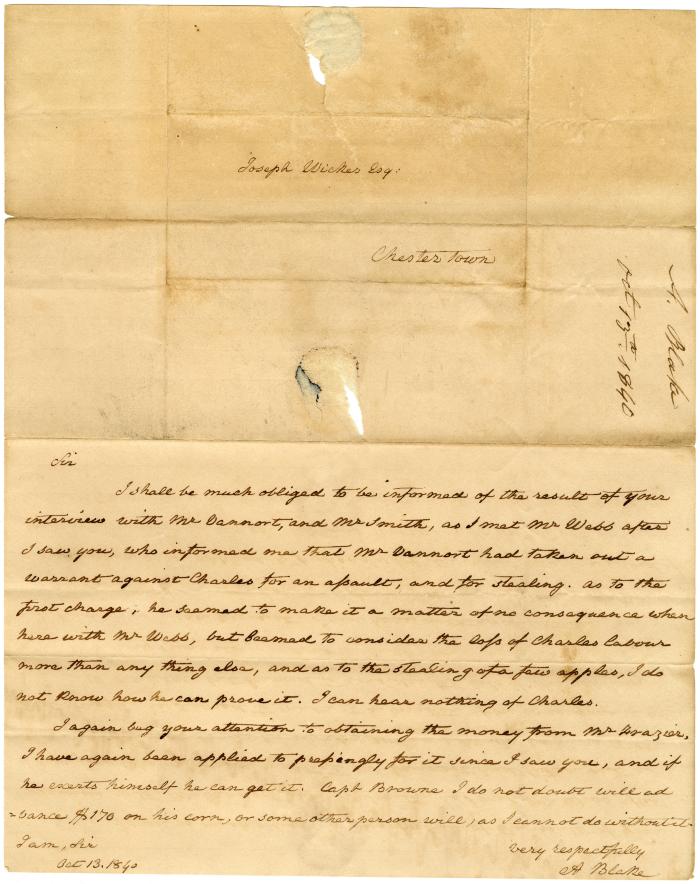 Joseph Wickes Esq:
Chester Town
A. Blake
Oct 13th. 1840
Sir
I shall be much obliged to be informed of the result of your
interview with Mr Vannort, and Mr Smith, as I met Mr Webb after
I saw you, who informed me that Mr Vannort had taken out a
warrant against Charles for an assault, and for stealing. as to the
first charge, he seemed to make it a matter of no consequence when
here with Mr Webb, but seemed to consider the loss of Charles labour
more than any thing else, and as to the stealing of a few apples, I do
not know how he can prove it. I can hear nothing of Charles.
I again bug your attention to obtaining the money from Mr Frazier,
I have again been applied to pressingly for it since I saw you, and if
he exerts himself he can get it. Capt Browne I do not doubt will ad
=vance $170 on his corn, or some other person will, as I cannot do without it.
I am, Sir
very respectfully
Oct 13. 1840
A Blake